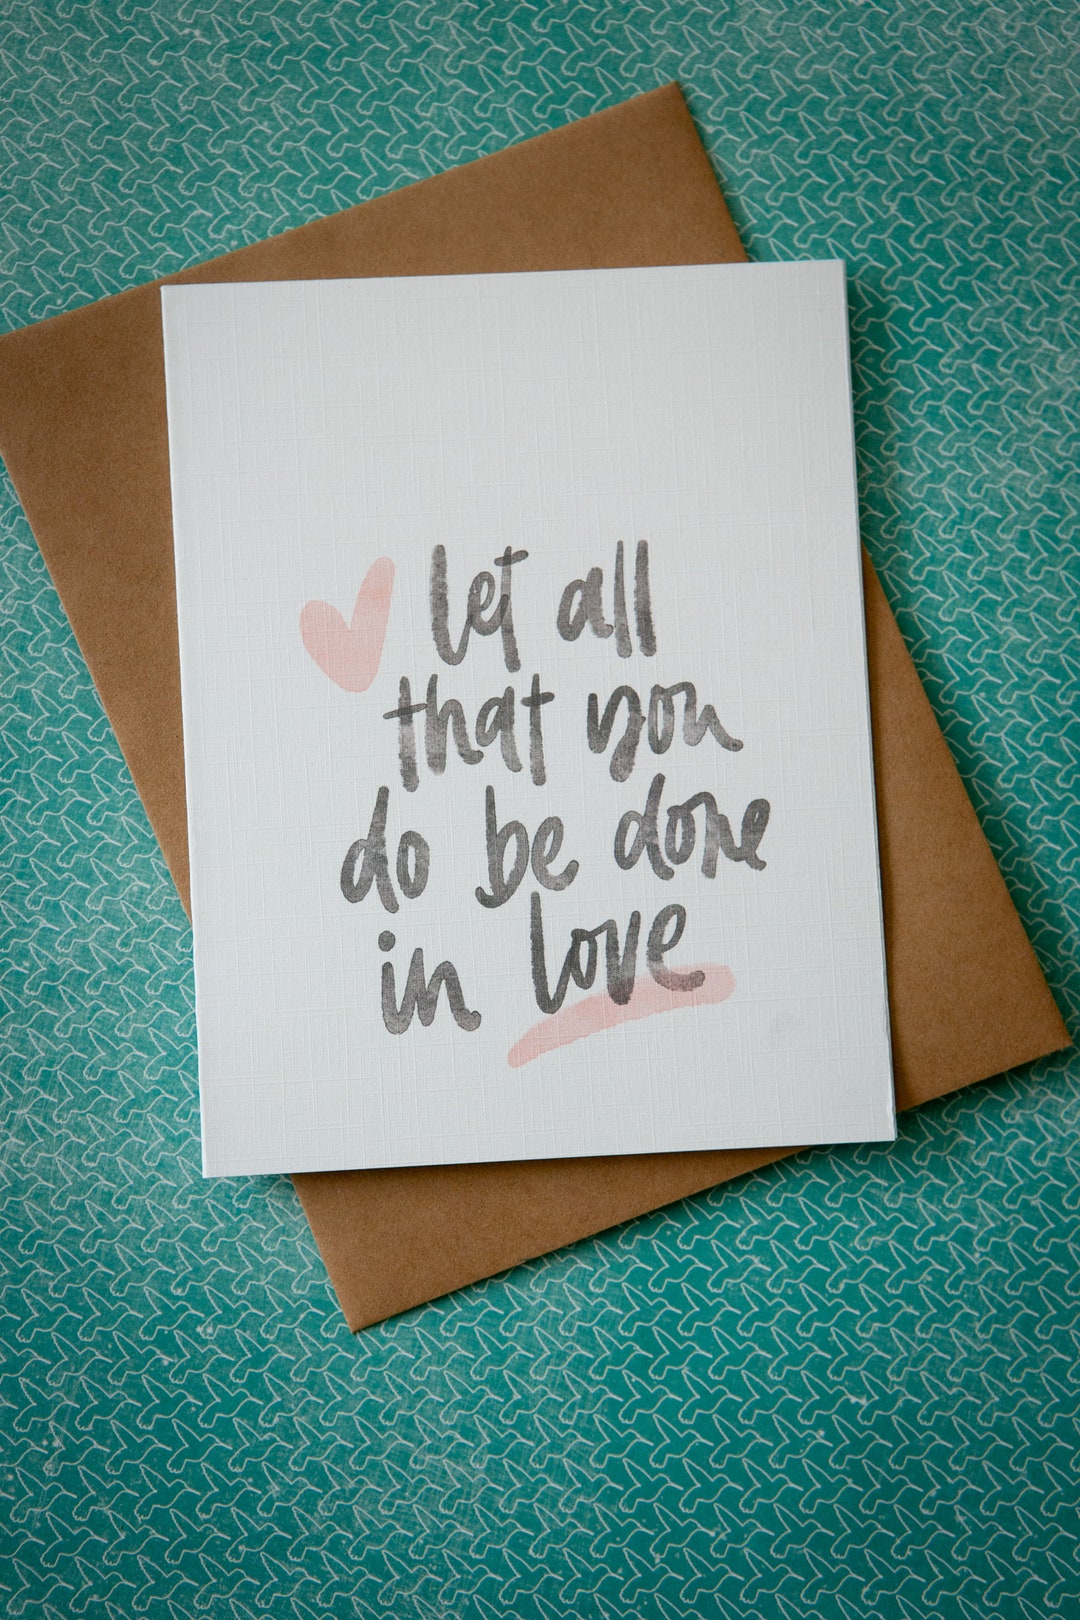 let all
that you
do be done
in love